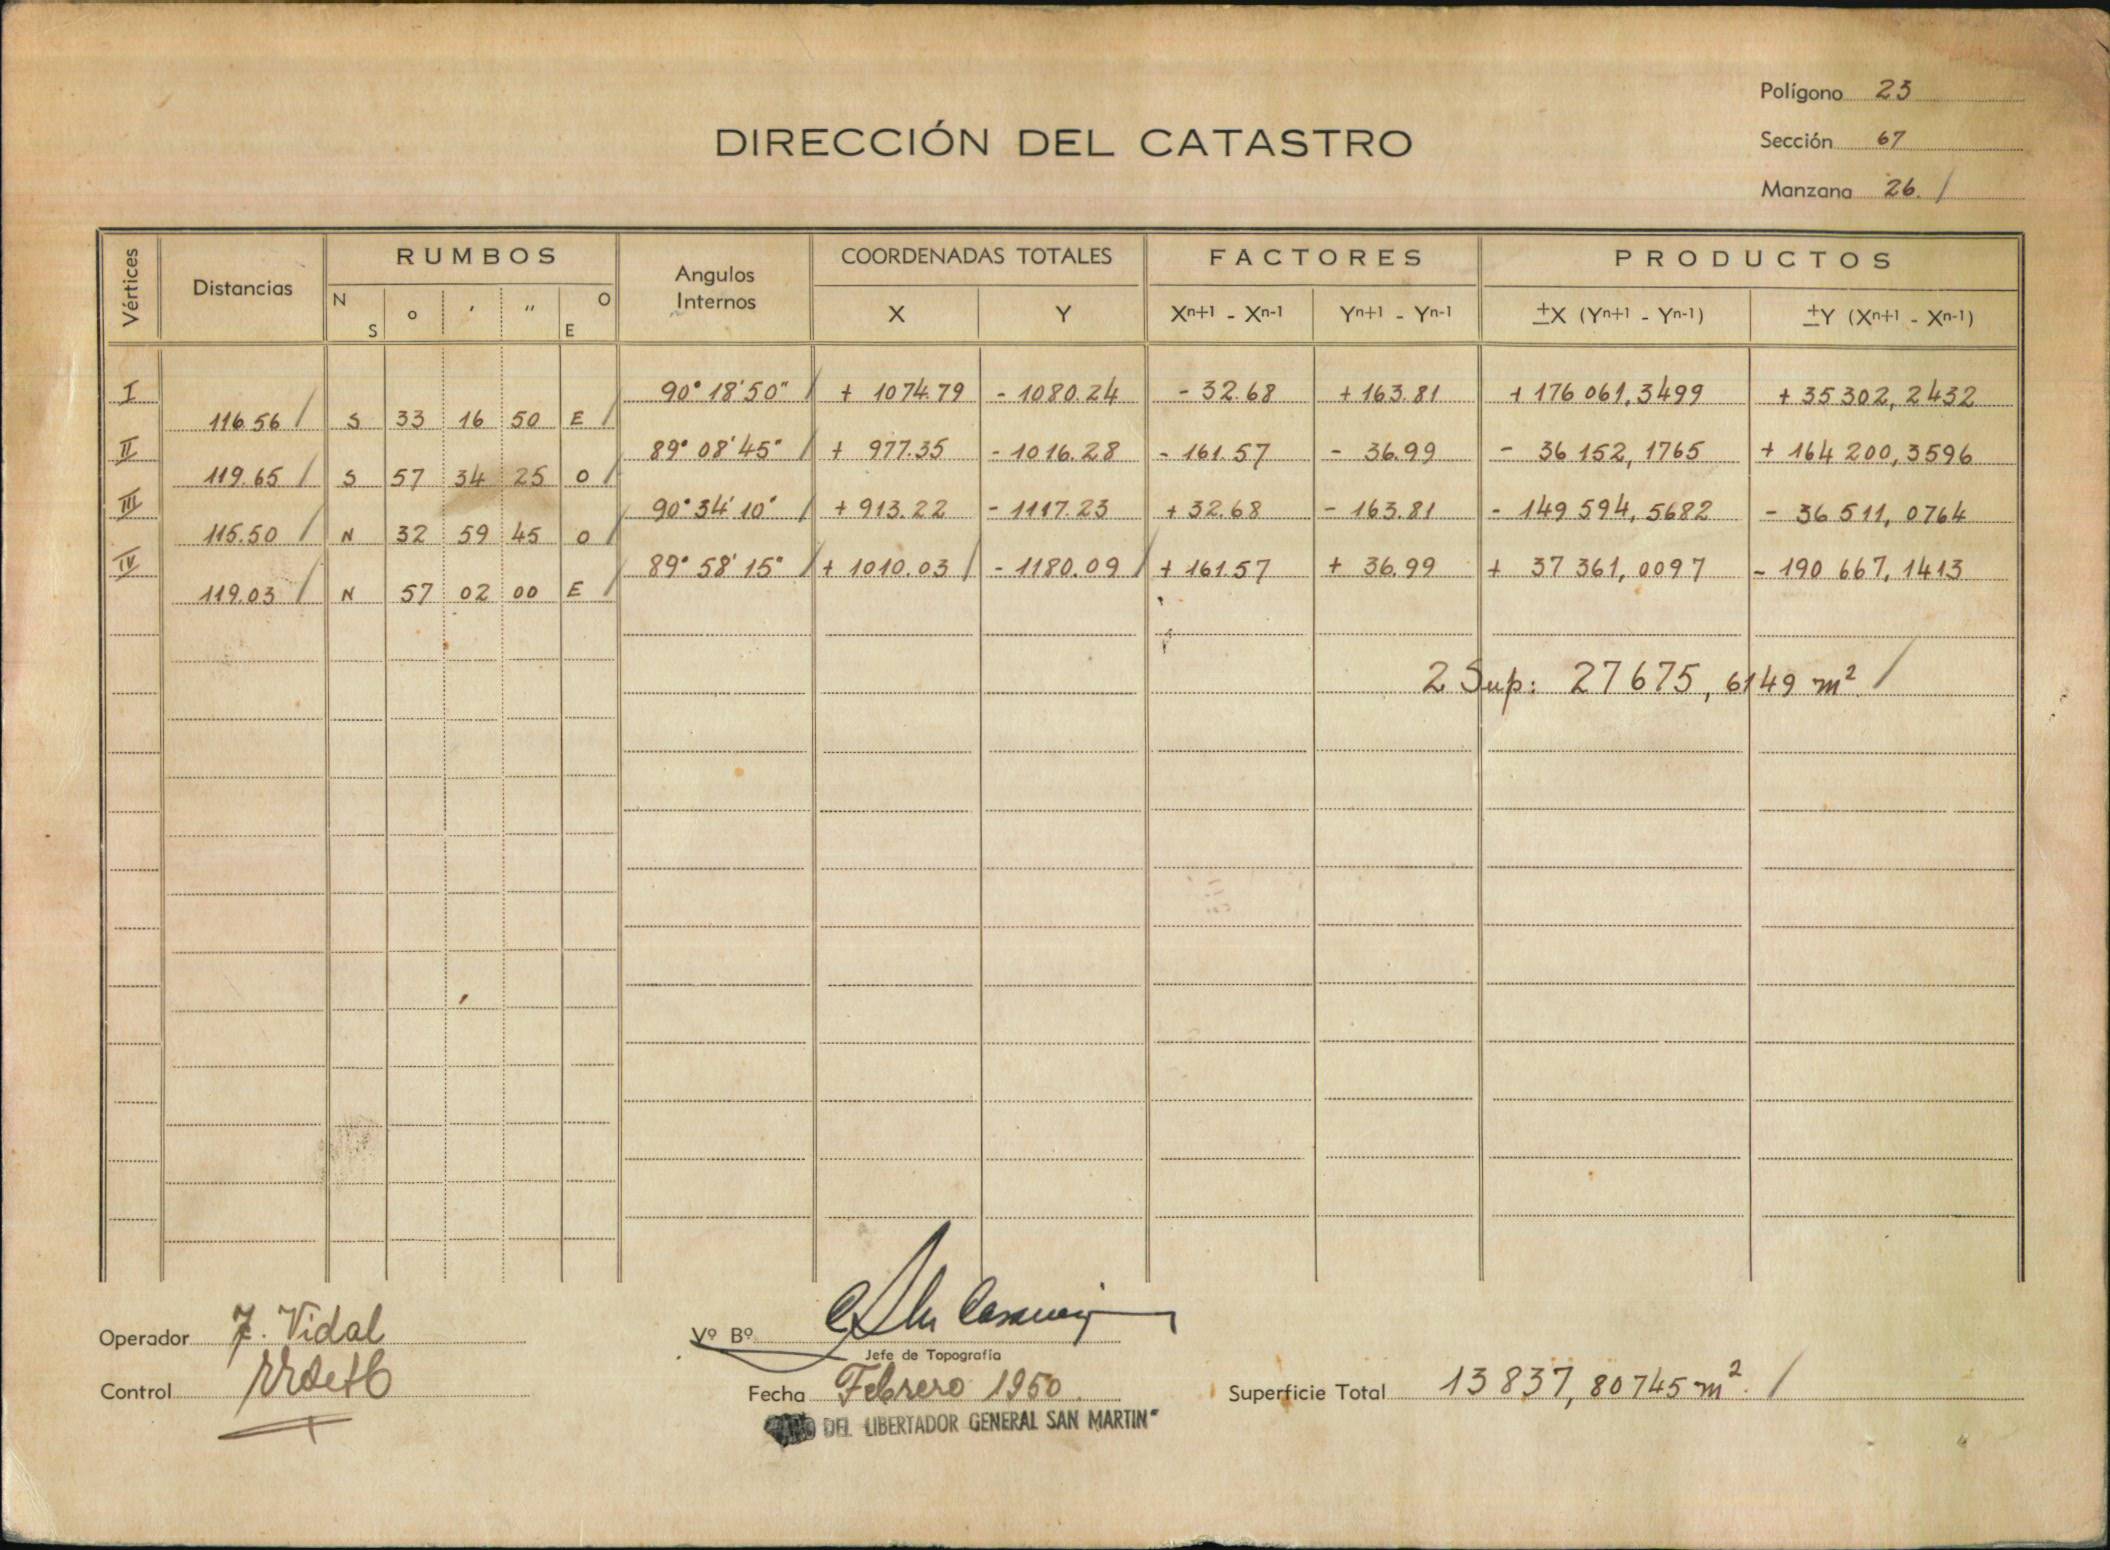 Polígono 23
DIRECCIÓN DEL CATASTRO
Sección 67
Manzana 26. /
Vértices Distancias RUMBOS Angulos Internos COORDENADAS TOTALES FACTORES PRODUCTOS
N S o ' " O E X Y Xn+1 - Xn-1 Yn+1 - Yn-1 ±X (Yn+1 - Yn-1) ±Y (Xn+1 - Xn-1)
I 90° 18' 50" / + 1074.79 - 1080.24 - 32.68 + 163.81 + 176 061,3499 + 35 302,2432
116.56 / S 33 16 50 E /
II 89° 08' 45" / + 977.35 - 1016.28 - 161.57 - 36.99 - 36 152,1765 + 164 200,3596
119.65 / S 57 34 25 O /
III 90° 34' 10" / + 913.22 - 1117.23 + 32.68 - 163.81 - 149 594,5682 - 36 511,0764
115.50 / N 32 59 45 O /
IV 89° 58' 15" / + 1010.03 / - 1180.09 / + 161.57 + 36.99 + 37 361,0097 - 190 667,1413
119.03 / N 57 02 00 E /
2 Sup: 27675,6149 m². /
Operador J. Vidal
Vº Bº
Jefe de Topografía
Control
Fecha Febrero 1950.
Superficie Total 13837,80745 m². /
DEL LIBERTADOR GENERAL SAN MARTIN"